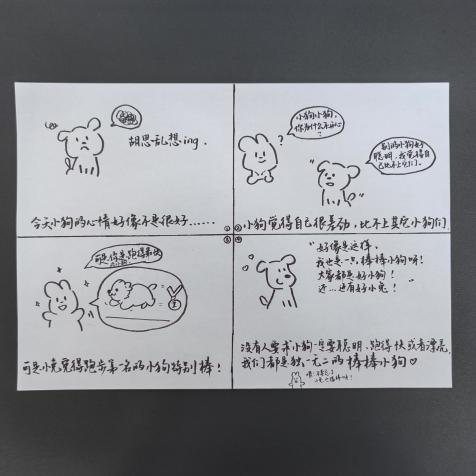 胡思乱想ing.
今天小狗的心情好像不是很好……
小狗小狗,
你为什么不开心?
别的小狗好
聪明,我觉得自
己比不上它们.
小狗觉得自己很差劲,比不上其它小狗们.
可是你是跑得最快
可是小兔觉得跑步第一名的小狗特别棒!
好像是这样,
我也是一只棒棒小狗呀!
大家都是好小狗!
还…还有好小兔!
没有人要求小狗一定要聪明、跑得快或者漂亮,
我们都是独一无二的棒棒小狗